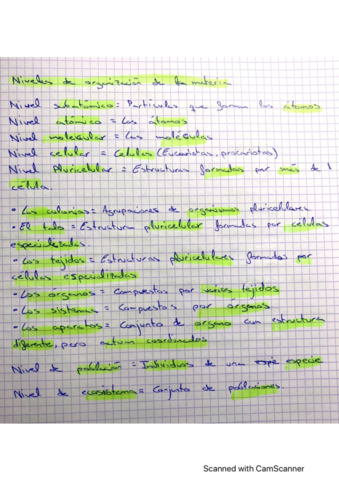 Niveles de organización de la materia
Nivel subatómico: Partículas que forman los átomos
Nivel atómico = Los átomos
Nivel molecular = Las moléculas
Nivel celular = Celulas (Eucariotas, procariotas)
Nivel Pluricelular = Estructuras formadas por más de 1
célula.
• Las colonias = Agrupaciones de organismos pluricelulares
• El talo = Estructura pluricelular formadas por células
especializadas.
• Los tejidos = Estructuras pluricelulares formadas por
células especializadas
• Los órganos = Compuestos por varios tejidos
• Los sistemas = Compuestos por órganos
• Los aparatos = Conjunto de organo con estructura
diferente, pero actuan coordinados
Nivel de población = Individuos de una especie
Nivel de ecosistema = Conjunto de poblaciones.
Scanned with CamScanner